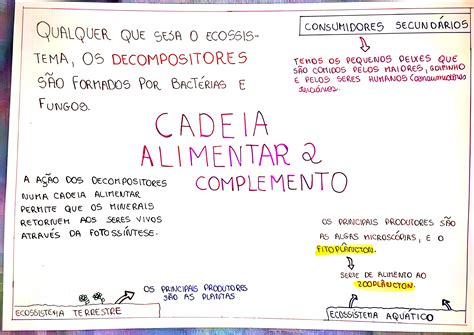 QUALQUER QUE SEJA O ECOSSIS-
TEMA, OS DECOMPOSITORES
SÃO FORMADOS POR BACTÉRIAS E
FUNGOS.
CONSUMIDORES SECUNDÁRIOS
TEMOS OS PEQUENOS PEIXES QUE
SÃO COMIDOS PELOS MAIORES, GOLFINHO
E PELOS SERES HUMANOS (consumidores
terciários.
CADEIA
ALIMENTAR 2
COMPLEMENTO
A AÇÃO DOS DECOMPOSITORES
NUMA CADEIA ALIMENTAR
PERMITE QUE OS MINERAIS
RETORNEM AOS SERES VIVOS
ATRAVÉS DA FOTOSSÍNTESE.
OS PRINCIPAIS PRODUTORES
SÃO AS PLANTAS
ECOSSISTEMA TERRESTRE
OS PRINCIPAIS PRODUTORES SÃO
AS ALGAS MICROSCÓPIAS, E O
FITOPLÂNCTON.
SERVE DE ALIMENTO AO
ZOOPLÂNCTON.
ECOSSISTEMA AQUÁTICO